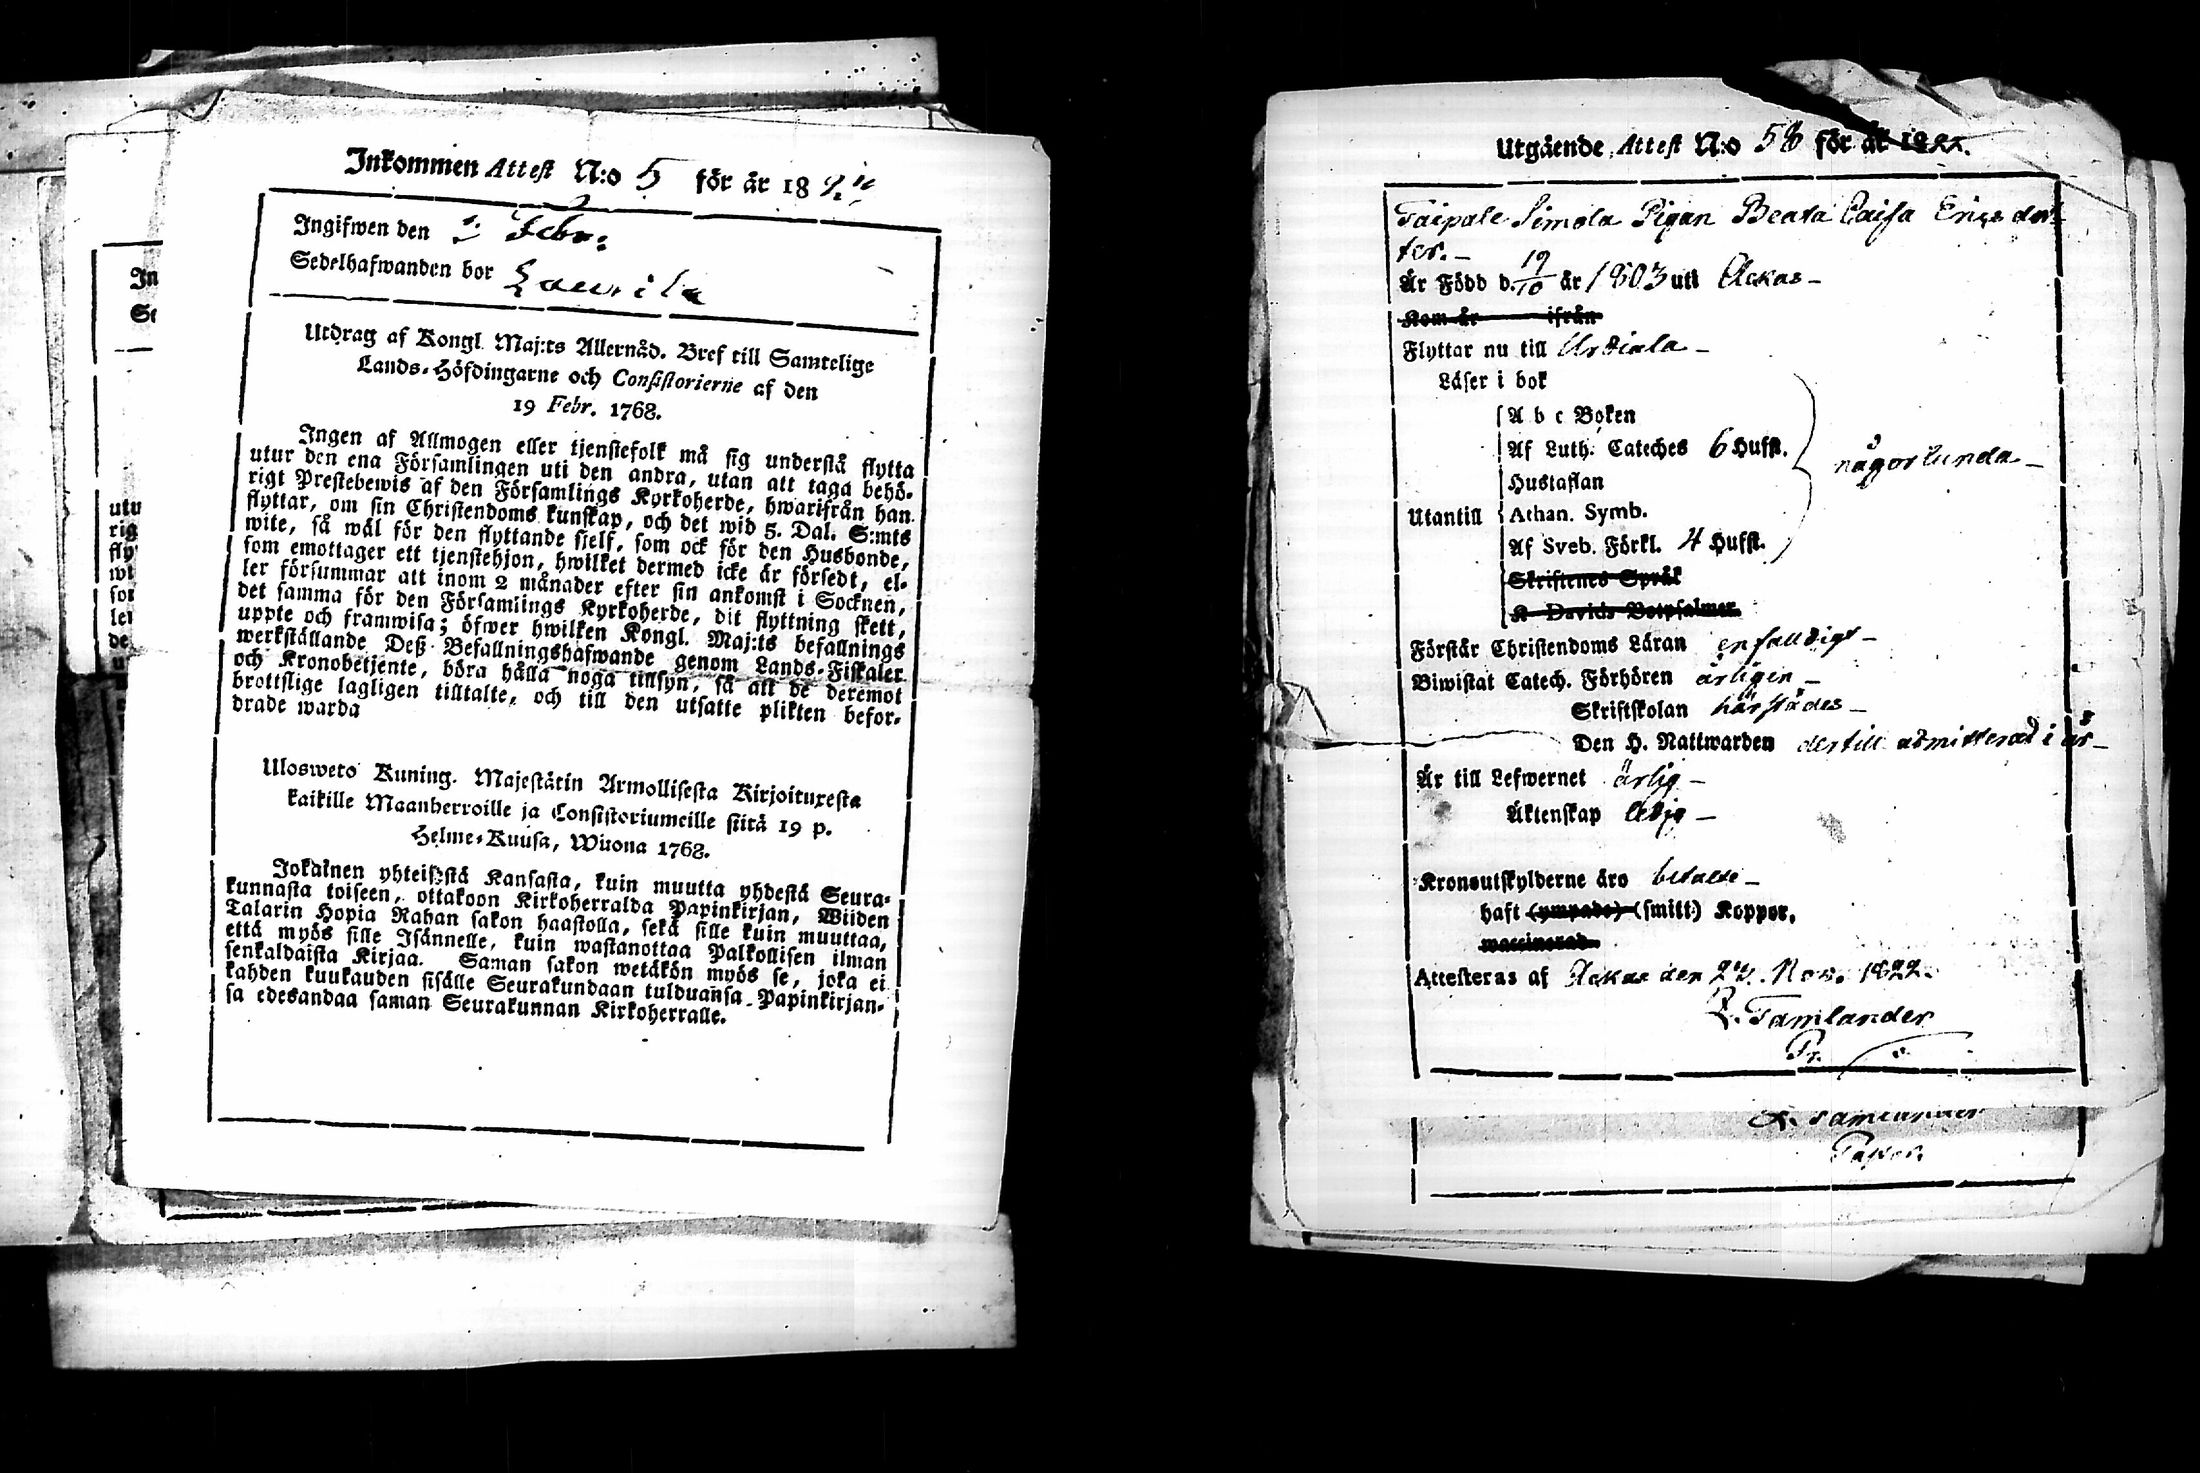 Inkommen Attest N:o 5 för år 18
Ingifwen den Febr:
Sedelhafwanden bor Laurila
Utdrag af Kongl. Maj:ts Allernåd. Bref till Samtelige
Lands-Höfdingarne och Consistorierne af den
19 Febr. 1768.
Ingen af Allmogen eller tjenstefolk må sig understå flytta
utur den ena Församlingen uti den andra, utan att taga behö-
rigt Prestebewis af den Församlings Kyrkoherde, hwarifrån han
flyttar, om sin Christendoms kunskap, och det wid 5. Dal. S:mts
wite, så wäl för den flyttande sjelf, som ock för den Husbonde,
som emottager ett tjenstehjon, hwilket dermed icke är försedt, el-
ler försummar att inom 2 månader efter sin ankomst i Socknen,
det samma för den Församlings Kyrkoherde, dit flyttning skett,
uppte och framwisa; öfwer hwilken Kongl. Maj:ts befallnings
werkställande Deß Befallningshafwande genom Lands-Fiskaler
och Kronobetjente, böra hålla noga tillsyn, så att de deremot
brottslige lagligen tilltalte, och till den utsatte plikten befor-
drade warda
Ulosweto Kuning. Majestätin Armollisesta Kirjoituxesta
kaikille Maanherroille ja Consistoriumeille siitä 19 p.
Helme-Kuusa, Wuona 1768.
Jokainen yhteisestä Kansasta, kuin muutta yhdestä Seura-
kunnasta toiseen, ottakoon Kirkoherralda Papinkirjan, Wiiden
Talarin Hopia Rahan sakon haastolla, sekä sille kuin muuttaa,
että myös sille Isännelle, kuin wastanottaa Palkollisen ilman
senkaldaista Kirjaa. Saman sakon wetäkön myös se, joka ei
kahden kuukauden sisälle Seurakundaan tulduansa Papinkirjan-
sa edesandaa saman Seurakunnan Kirkoherralle.
Utgående Attest N:o 58 för år 1822.
Taipale Simola Pigan Beata Caisa Ericsdot-
ter. -
Är Född d. 19/10 år 1803 uti Ackas -
Kom år ifrån
Flyttar nu till Urdiala -
Läser i bok
A b c Boken
Af Luth. Cateches 6 Hufst.
någorlunda -
Hustaflan
Utantill Athan. Symb.
Af Sveb. Förkl. 4 Hufst.
Skriftenes Språk
K Davids Botpsalmer
Förstår Christendoms Läran enfaldigt -
Biwistat Catech. Förhören årligen -
Skriftskolan härstädes -
Den H. Nattwarden dertill admitterad i år -
Är till Lefwernet ärlig -
Äktenskap ledig -
Kronoutskylderne äro betalte -
haft (ympade) (smitt) Koppor,
waccinerad
Attesteras af Ackas den 24. Nov. 1822.
Tamlander
Pr.
Tamlander
Pastor.